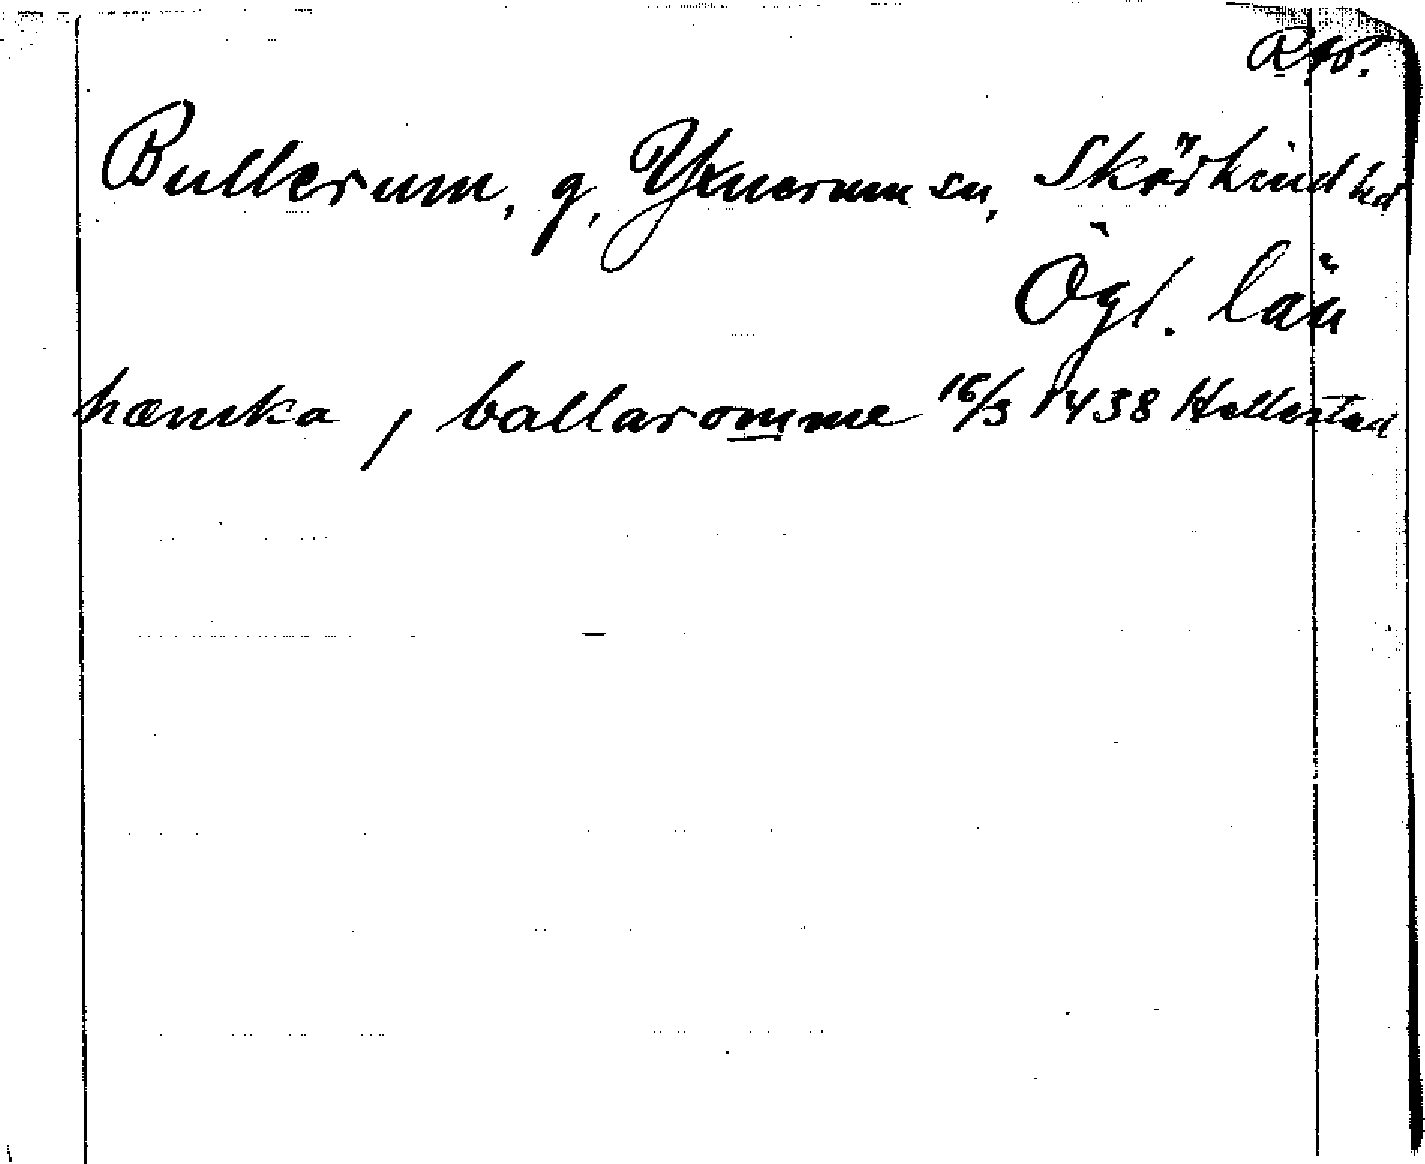 Bullerum, g, Yxnerum sn, Skärkind hd
Ögl. län
hæmka, ballaromme 16/3 1438 Hellestad